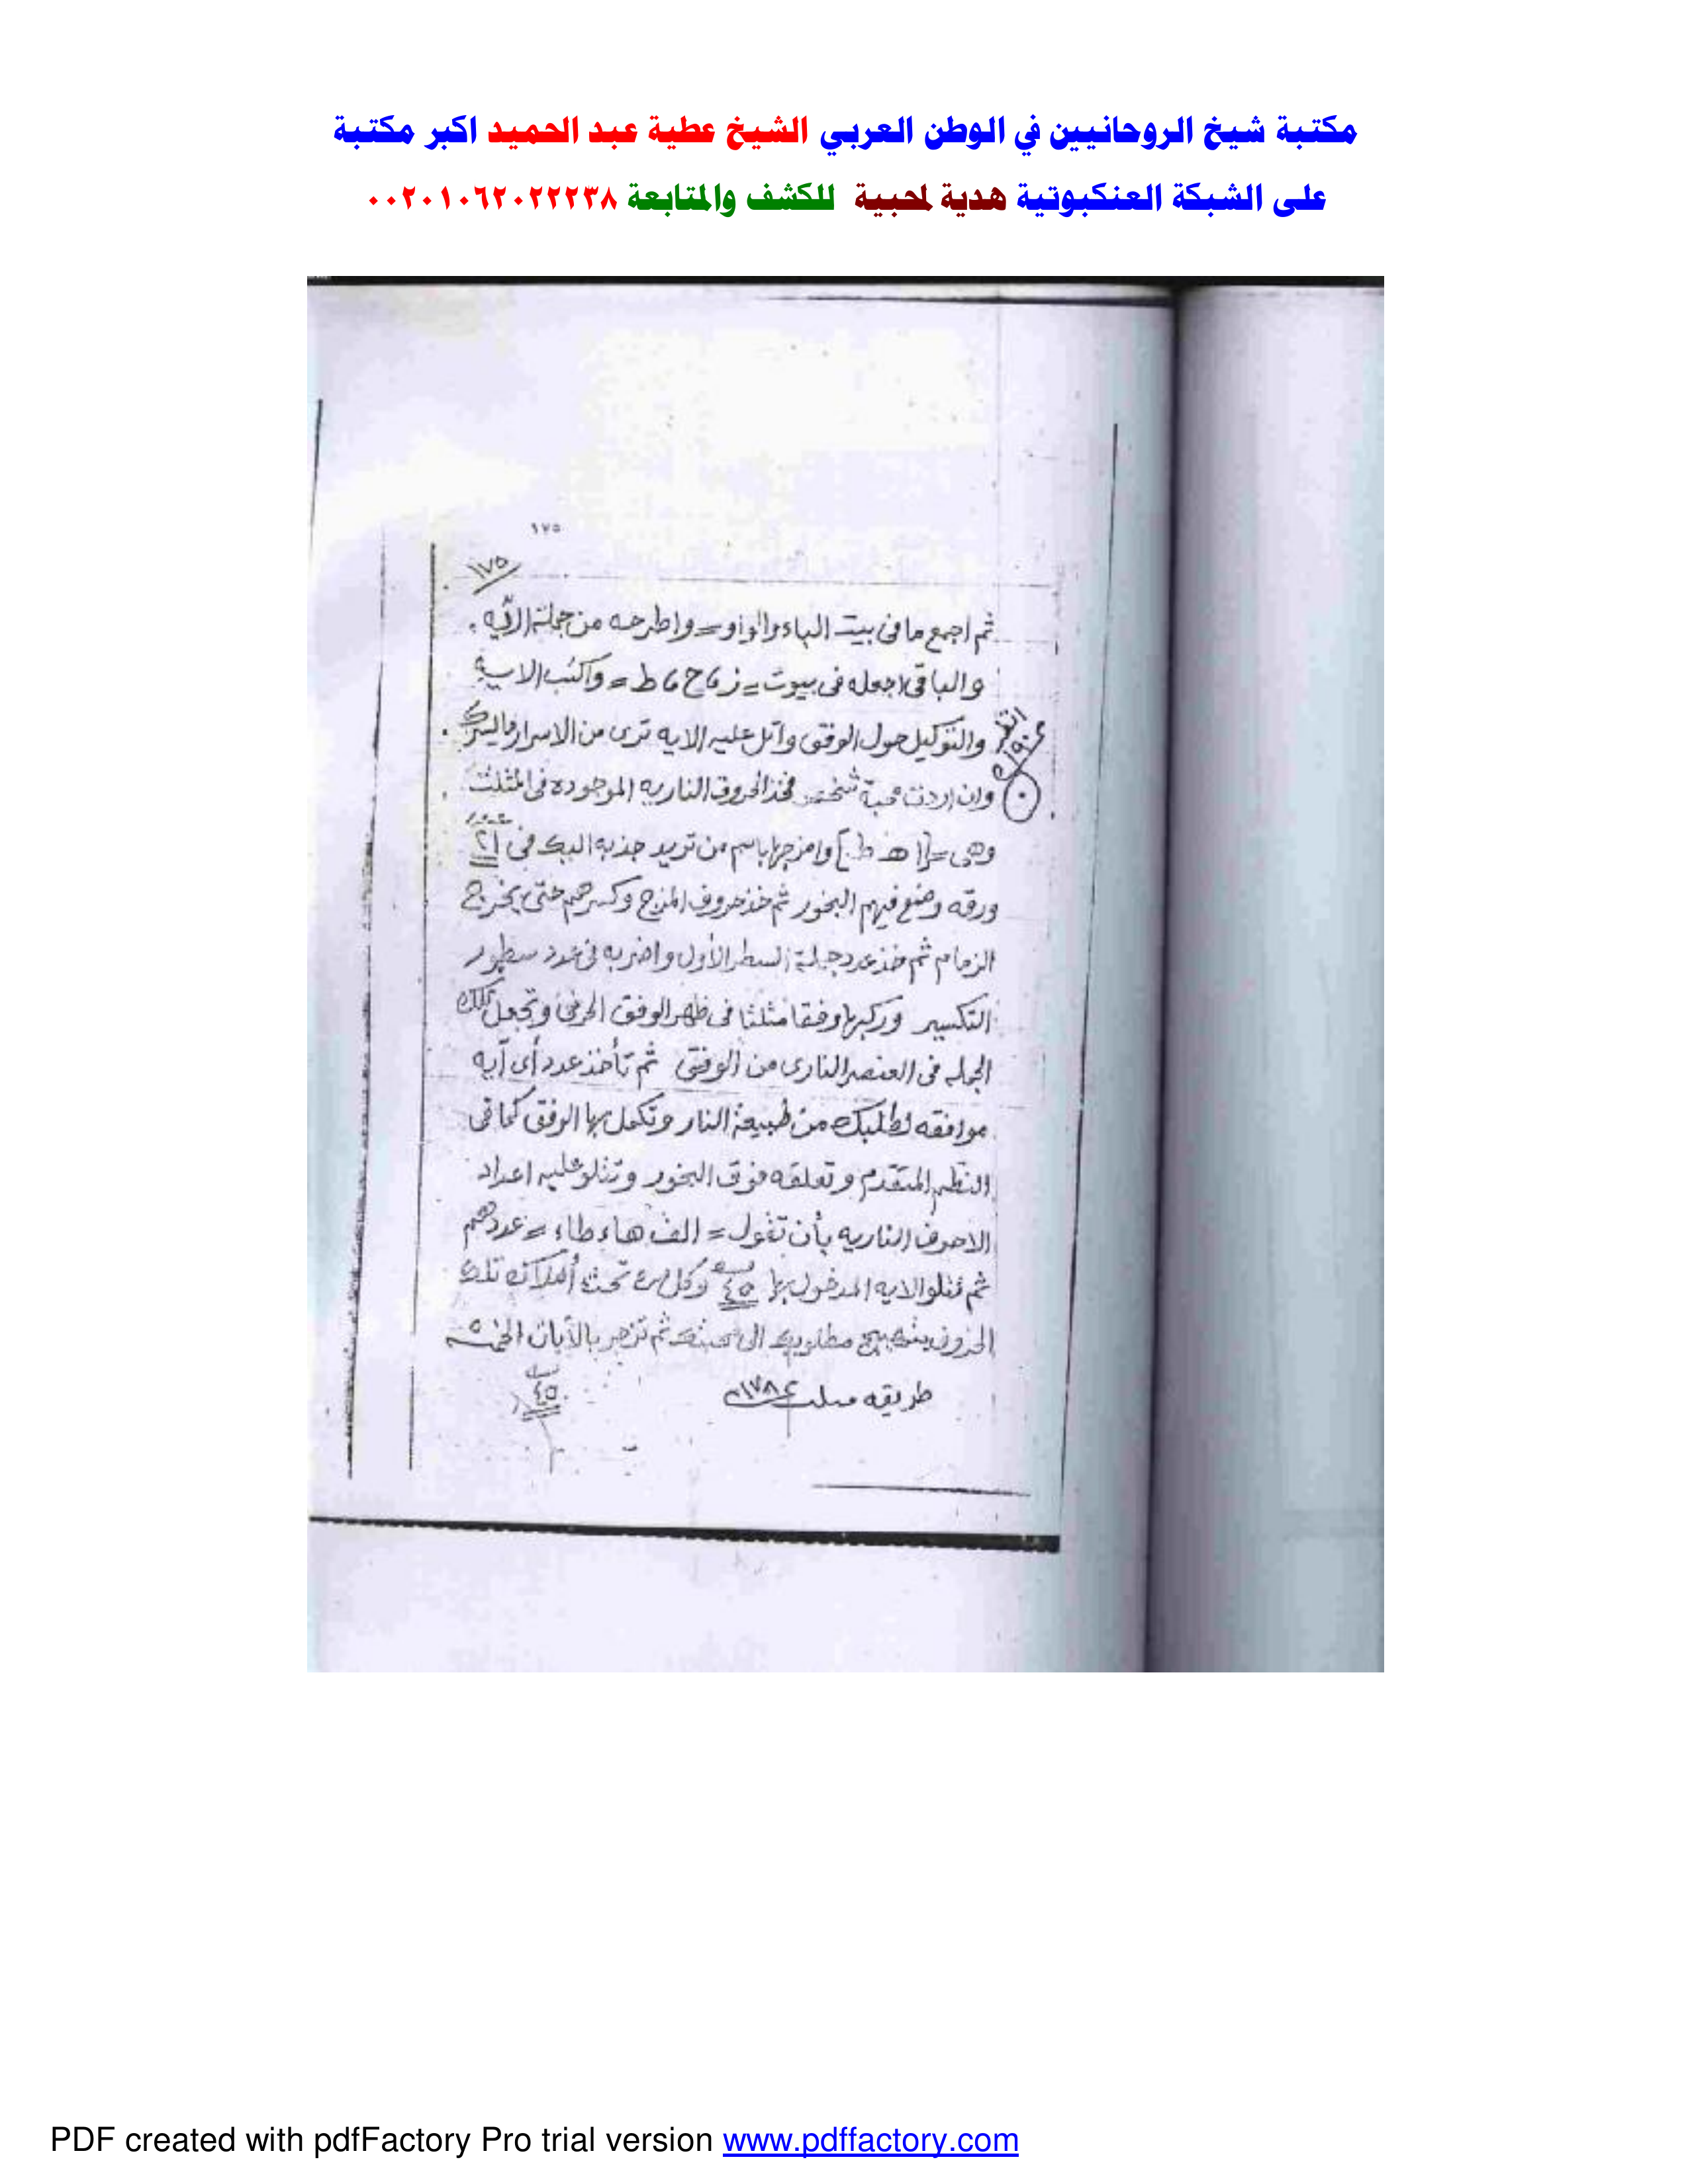 مكتبة شيخ الروحانيين في الوطن العربي الشيخ عطية عبد الحميد اكبر مكتبة
على الشبكة العنكبوتية هدية لمحبية للكشف والمتابعة ٠٠٢٠١٠٦٢٠٢٢٢٣٨
١٧٥
١٧٥
ثم اجمع ما فى بيت الباء والواو = واطرحه من جملة الآيه .
والباقى اجعله فى بيوت = ز ، ح ، ط = واكتب الايه
والتوكيل حول الوفق واتل عليه الايه ترى من الاسرار مايسرك .
وان اردت محبة شخص فخذ الحروف الناريه الموجوده فى المثلث
وهى = [ ا هـ ط ] وامزجها باسم من تريد جذبه اليك فى ٢١
ورقه وضع فيهم البخور ثم خذ حروف المزج وكسرهم حتى يخرج
الزمام ثم خذ عدد جملة السطر الأول واضربه فى عدد سطور
التكسير وركبها وفقا مثلثا فى ظهر الوفق الحرفى وتجعل تلك
الجمله فى العنصر النارى من الوفق ثم تأخذ عدد أى آيه
موافقه لطلبك من طبيعة النار وتكمل بها الوفق كما فى
النظم المتقدم وتعلقه فوق البخور وتتلو عليه اعداد
الاحرف الناريه بأن تقول = الف هاء طاء = عددهم
ثم تتلو الايه المدخول بها ٤٥ وكل تحت أملاك تلك
الحروف بتهييج مطلوبك الى محبتك ثم تزجر بالآيات الخمسه
طريقه ١٧٨
٤٥
PDF created with pdfFactory Pro trial version www.pdffactory.com